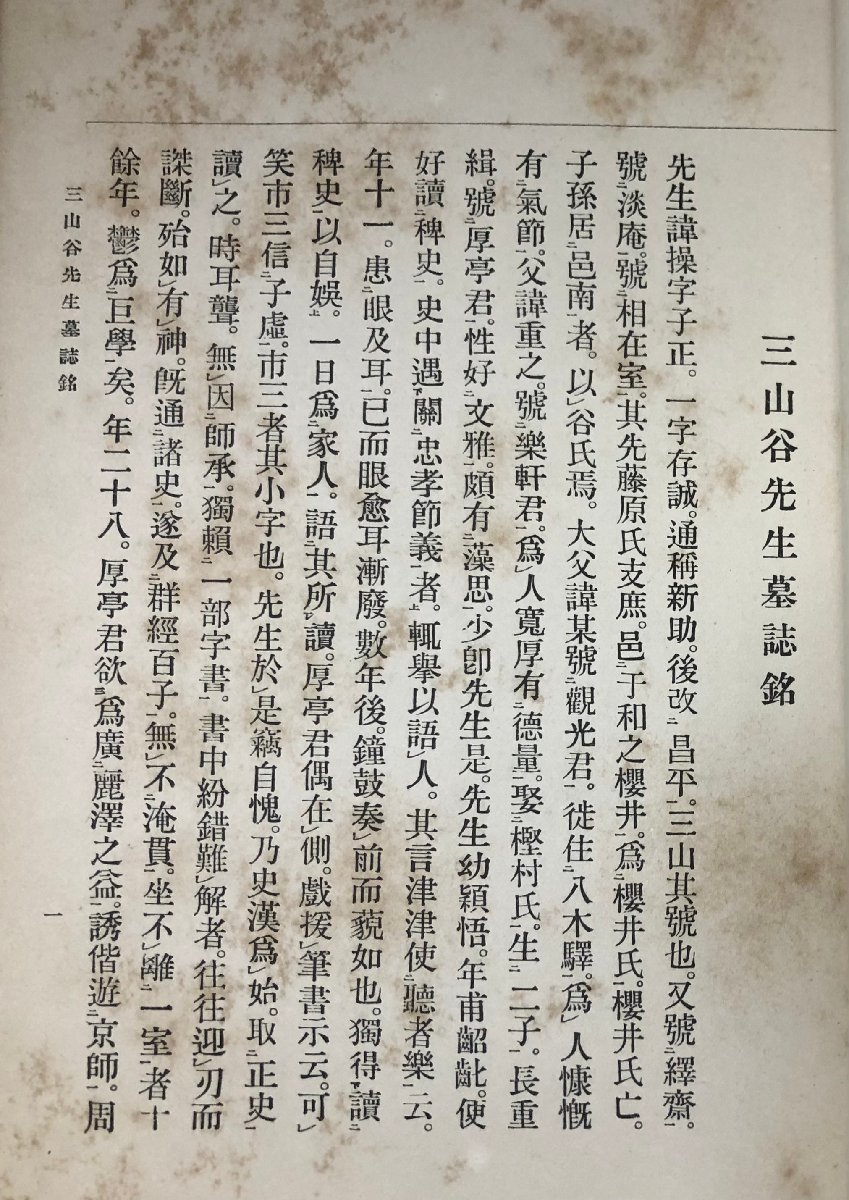 三山谷先生墓誌銘
先生諱操字子正。一字存誠。通稱新助。後改昌平。三山其號也。又號繹齋。
號淡庵。號相在室。其先藤原氏支庶。邑于和之櫻井。爲櫻井氏。櫻井氏亡。
子孫居邑南者。以谷氏焉。大父諱某號觀光君。徙住八木驛。爲人慷慨
有氣節。父諱重之。號樂軒君。爲人寬厚有德量。娶樫村氏。生二子。長重
緝。號厚亭君。性好文雅。頗有藻思。少卽先生是。先生幼穎悟。年甫齠齔。便
好讀稗史。史中遇關忠孝節義者。輒擧以語人。其言津津使聽者樂云。
年十一。患眼及耳。已而眼愈耳漸廢。數年後。鐘鼓奏前而藐如也。獨得讀
稗史以自娛。一日爲家人。語其所讀。厚亭君偶在側。戲援筆書示云。可
笑市三信子虛。市三者其小字也。先生於是竊自愧。乃史漢爲始。取正史
讀之。時耳聾。無因師承。獨賴一部字書。書中紛錯難解者。往往迎刃而
謋斷。殆如有神。旣通諸史。遂及群經百子。無不淹貫。坐不離一室者十
餘年。鬱爲巨學矣。年二十八。厚亭君欲爲廣麗澤之益。誘偕遊京師。周
三山谷先生墓誌銘
一